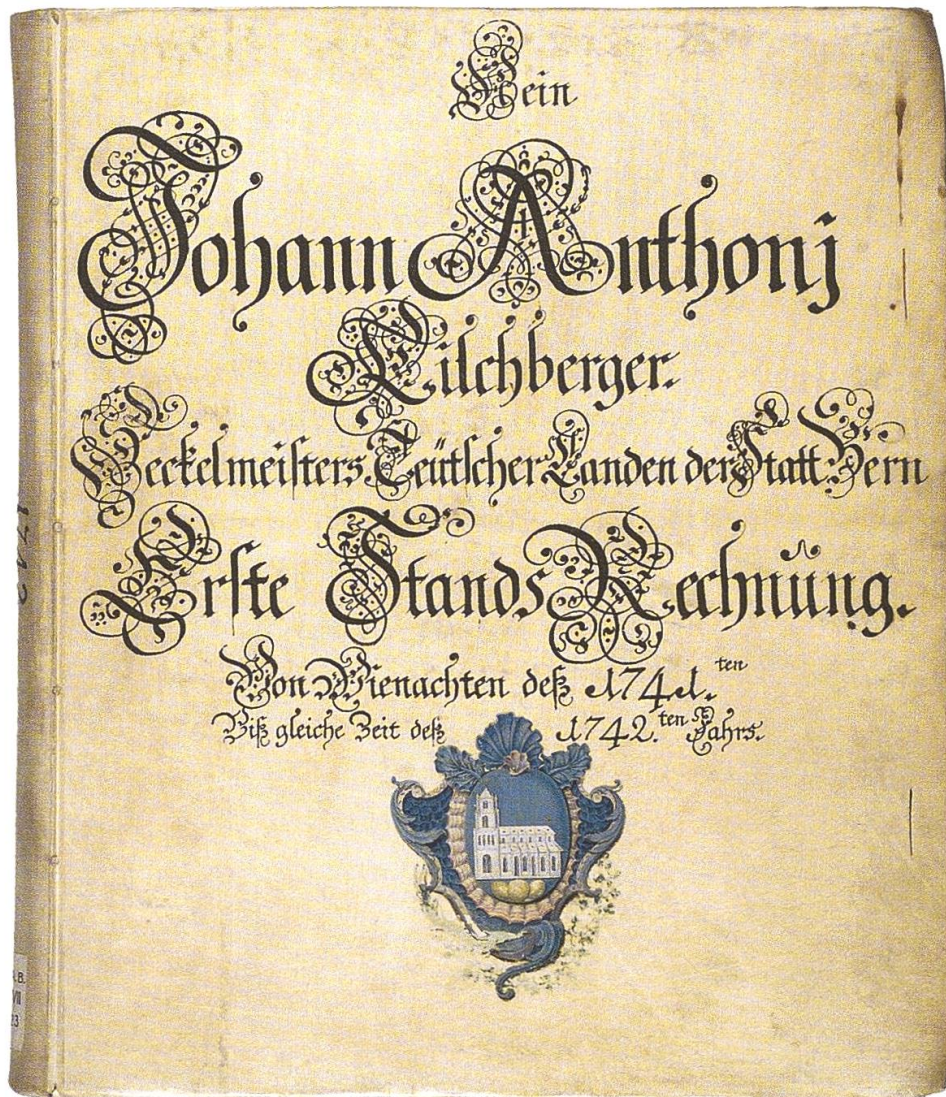 Mein
Johann Anthonj
Kilchberger.
Seckelmeisters Teütscher Landen der Statt Bern
Erste Stands Rechnŭng.
Von Wienachten deß 1741.ten
Biß gleiche Zeit deß 1742.ten Jahrs.
1742
A.B.
VII
23